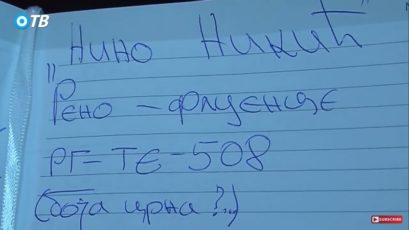 ОТВ
"Нино Никић"
Рено - флуенце
PF = TE - 508
(боја црна ?..)
SUBSCRIBE